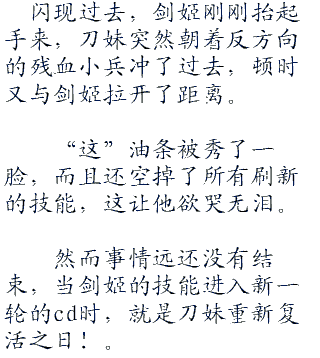 闪现过去，剑姬刚刚抬起
手来，刀妹突然朝着反方向
的残血小兵冲了过去，顿时
又与剑姬拉开了距离。
“这”油条被秀了一
脸，而且还空掉了所有刷新
的技能，这让他欲哭无泪。
然而事情远还没有结
束，当剑姬的技能进入新一
轮的cd时，就是刀妹重新复
活之日！。